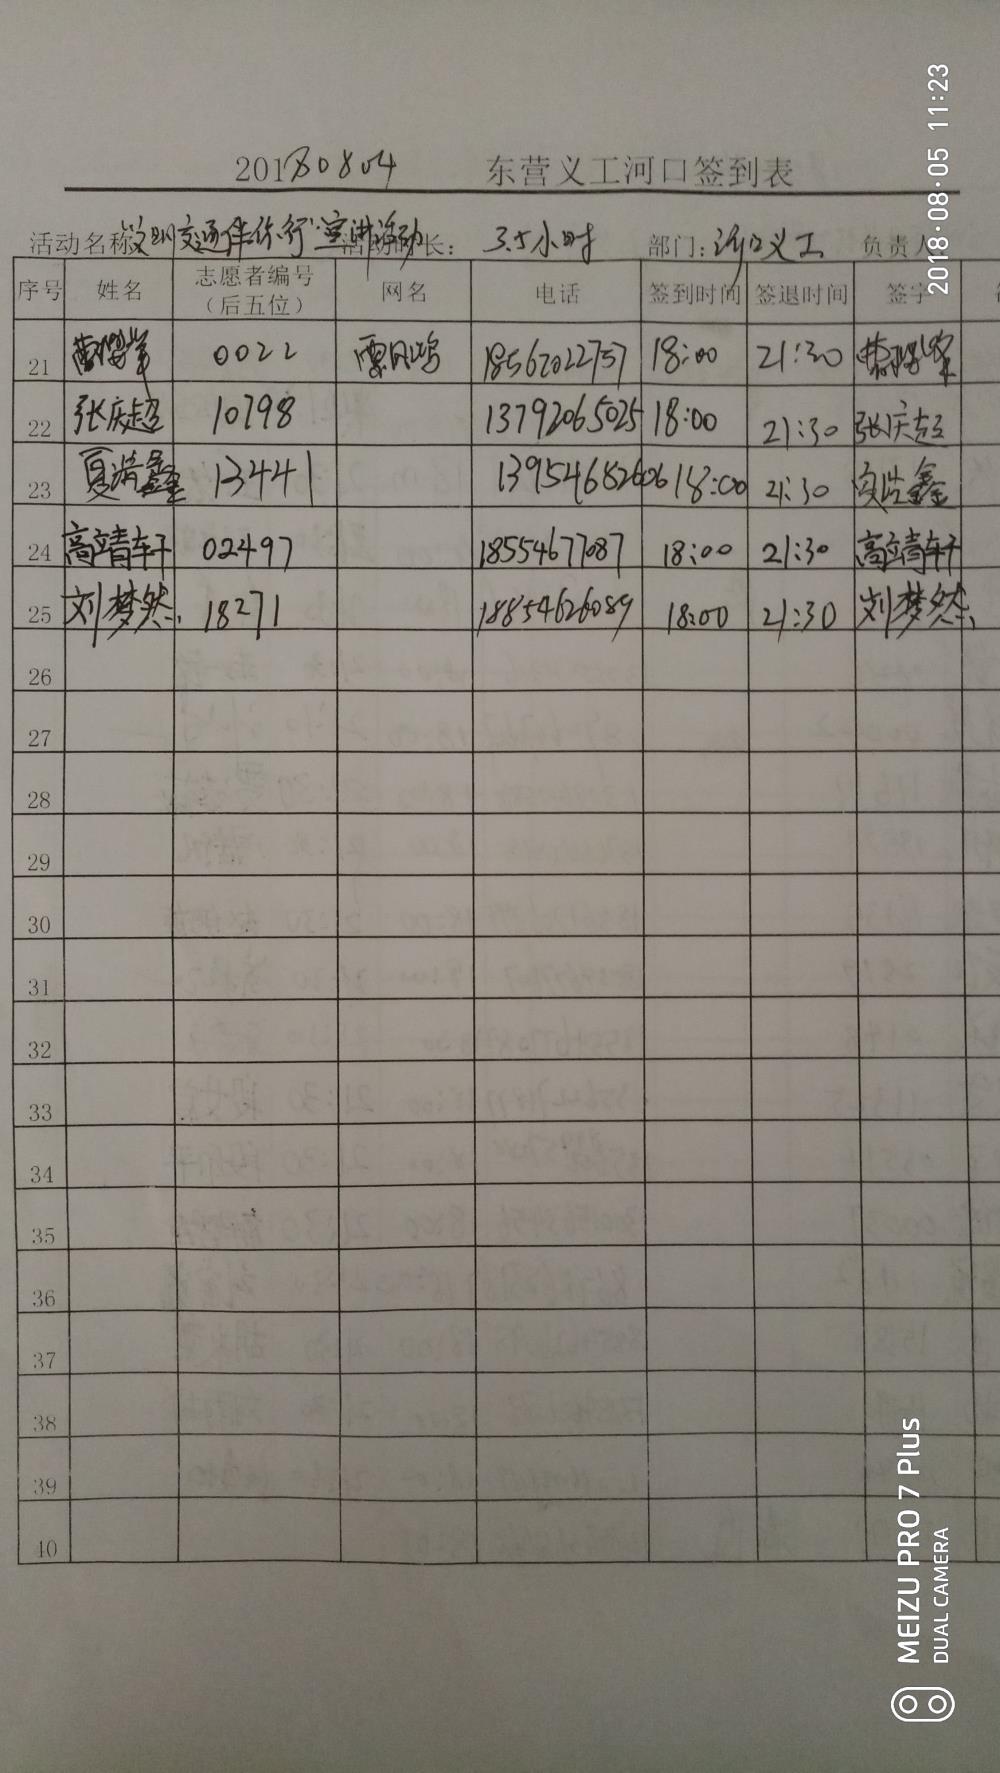 20180804 东营义工河口签到表
活动名称:"文明交通伴你行"宣讲活动 活动时长: 3.5小时 部门:河口义工 负责人
序号 姓名 志愿者编号(后五位) 网名 电话 签到时间 签退时间 签字
21 0022 18562022757 18:00 21:30
22 张庆超 10798 13792065025 18:00 21:30 张庆超
23 夏浩鑫 13441 13954682606 18:00 21:30 夏浩鑫
24 高靖轩 02497 18554677087 18:00 21:30 高靖轩
25 刘梦然 18271 18854626089 18:00 21:30 刘梦然
26
27
28
29
30
31
32
33
34
35
36
37
38
39
40
2018·08·05 11:23
MEIZU PRO 7 Plus
DUAL CAMERA